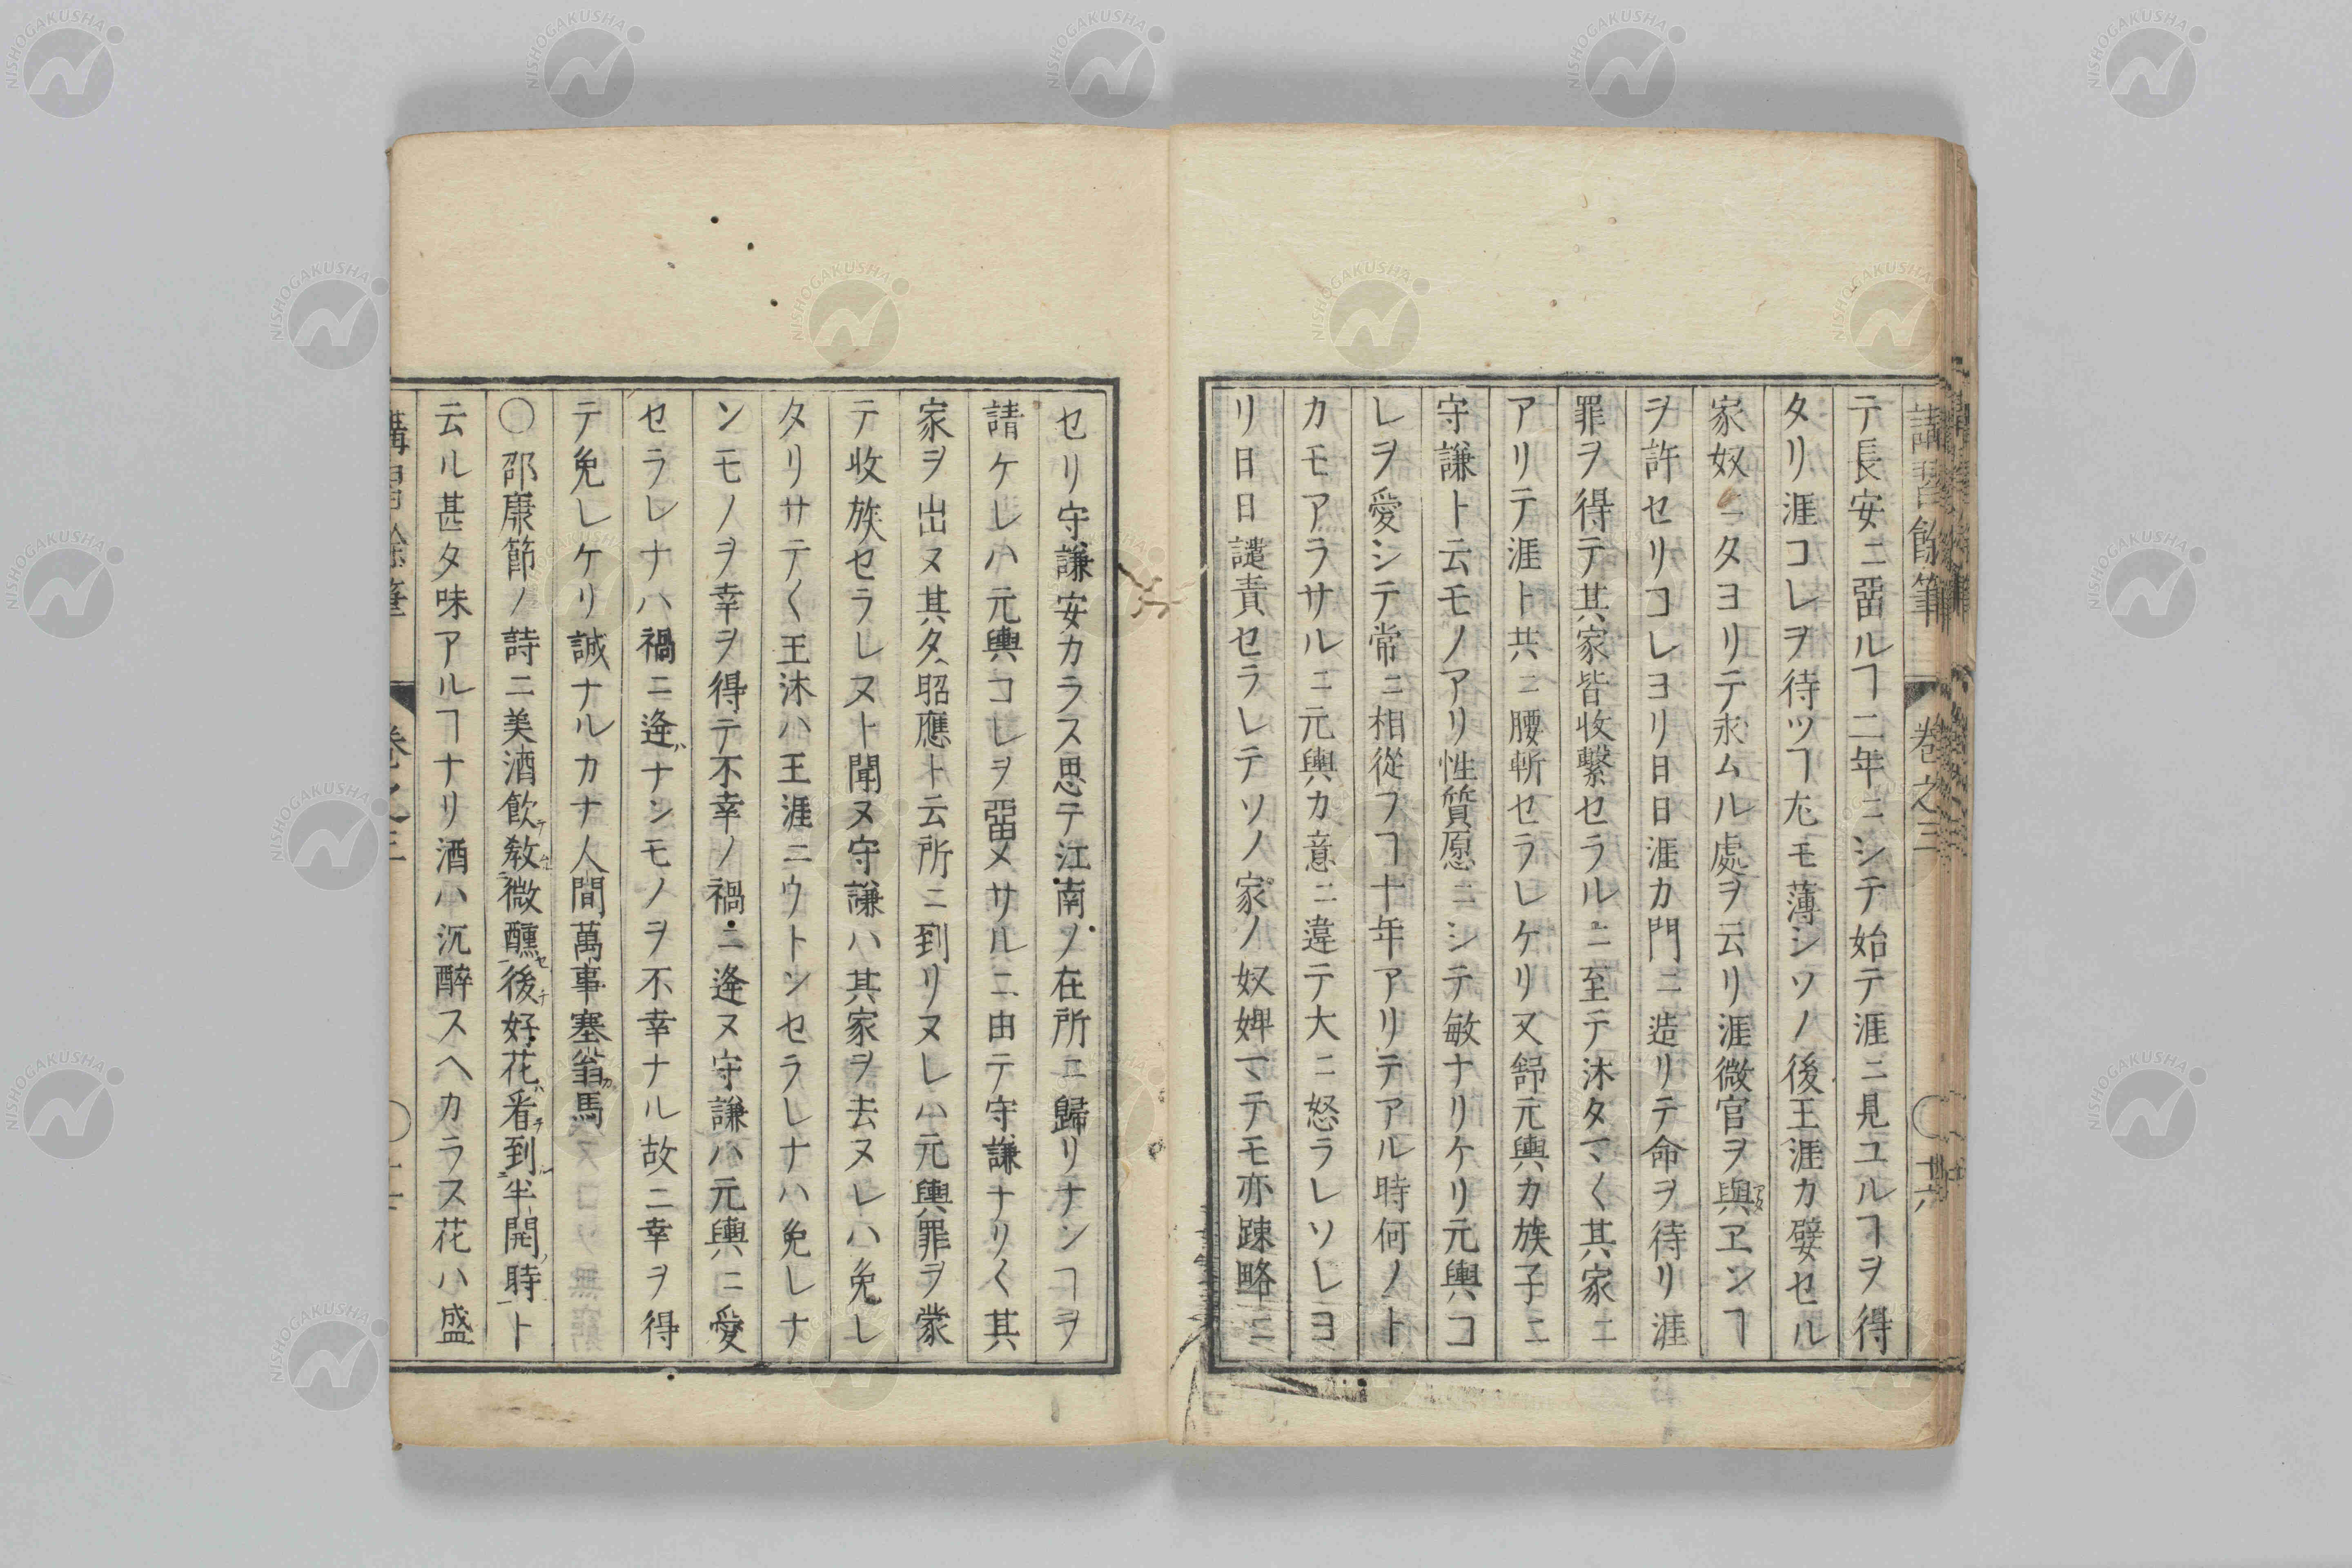 講習餘筆 卷之三 〇 廿六
テ長安ニ畱ルヿ二年ニシテ始テ涯ニ見ユルヿヲ得
タリ涯コレヲ待ツヿ尤モ薄シソノ後王涯カ嬖セル
家奴ニタヨリテ求ムル處ヲ云リ涯微官ヲ與ヱンヿ
ヲ許セリコレヨリ日日涯カ門ニ造リテ命ヲ待リ涯
罪ヲ得テ其家皆收繫セラルニ至テ沐タマ〱其家ニ
アリテ涯ト共ニ腰斬セラレケリ又舒元輿カ族子ニ
守謙ト云モノアリ性質愿ニシテ敏ナリケリ元輿コ
レヲ愛シテ常ニ相從フヿ十年アリテアル時何ノト
カモアラサルニ元輿カ意ニ違テ大ニ怒ラレソレヨ
リ日日譴責セラレテソノ家ノ奴婢マテモ亦踈略ニ
セリ守謙安カラス思テ江南ノ在所ニ歸リナンヿヲ
請ケレハ元輿コレヲ畱メサルニ由テ守謙ナリ〱其
家ヲ出ヌ其夕昭應ト云所ニ到リヌレハ元輿罪ヲ蒙
テ收族セラレヌト聞ヌ守謙ハ其家ヲ去ヌレハ免レ
タリサテ〱王沐ハ王涯ニウトンセラレナハ免レナ
ンモノヲ幸ヲ得テ不幸ノ禍ニ逢ヌ守謙ハ元輿ニ愛
セラレナハ禍ニ逢ナンモノヲ不幸ナル故ニ幸ヲ得
テ免レケリ誠ナルカナ人間萬事塞翁馬
〇邵康節ノ詩ニ美酒飮敎微醺後好花看到半開時ト
云ル甚タ味アルヿナリ酒ハ沉醉スヘカラス花ハ盛
講習餘筆 卷之三 〇